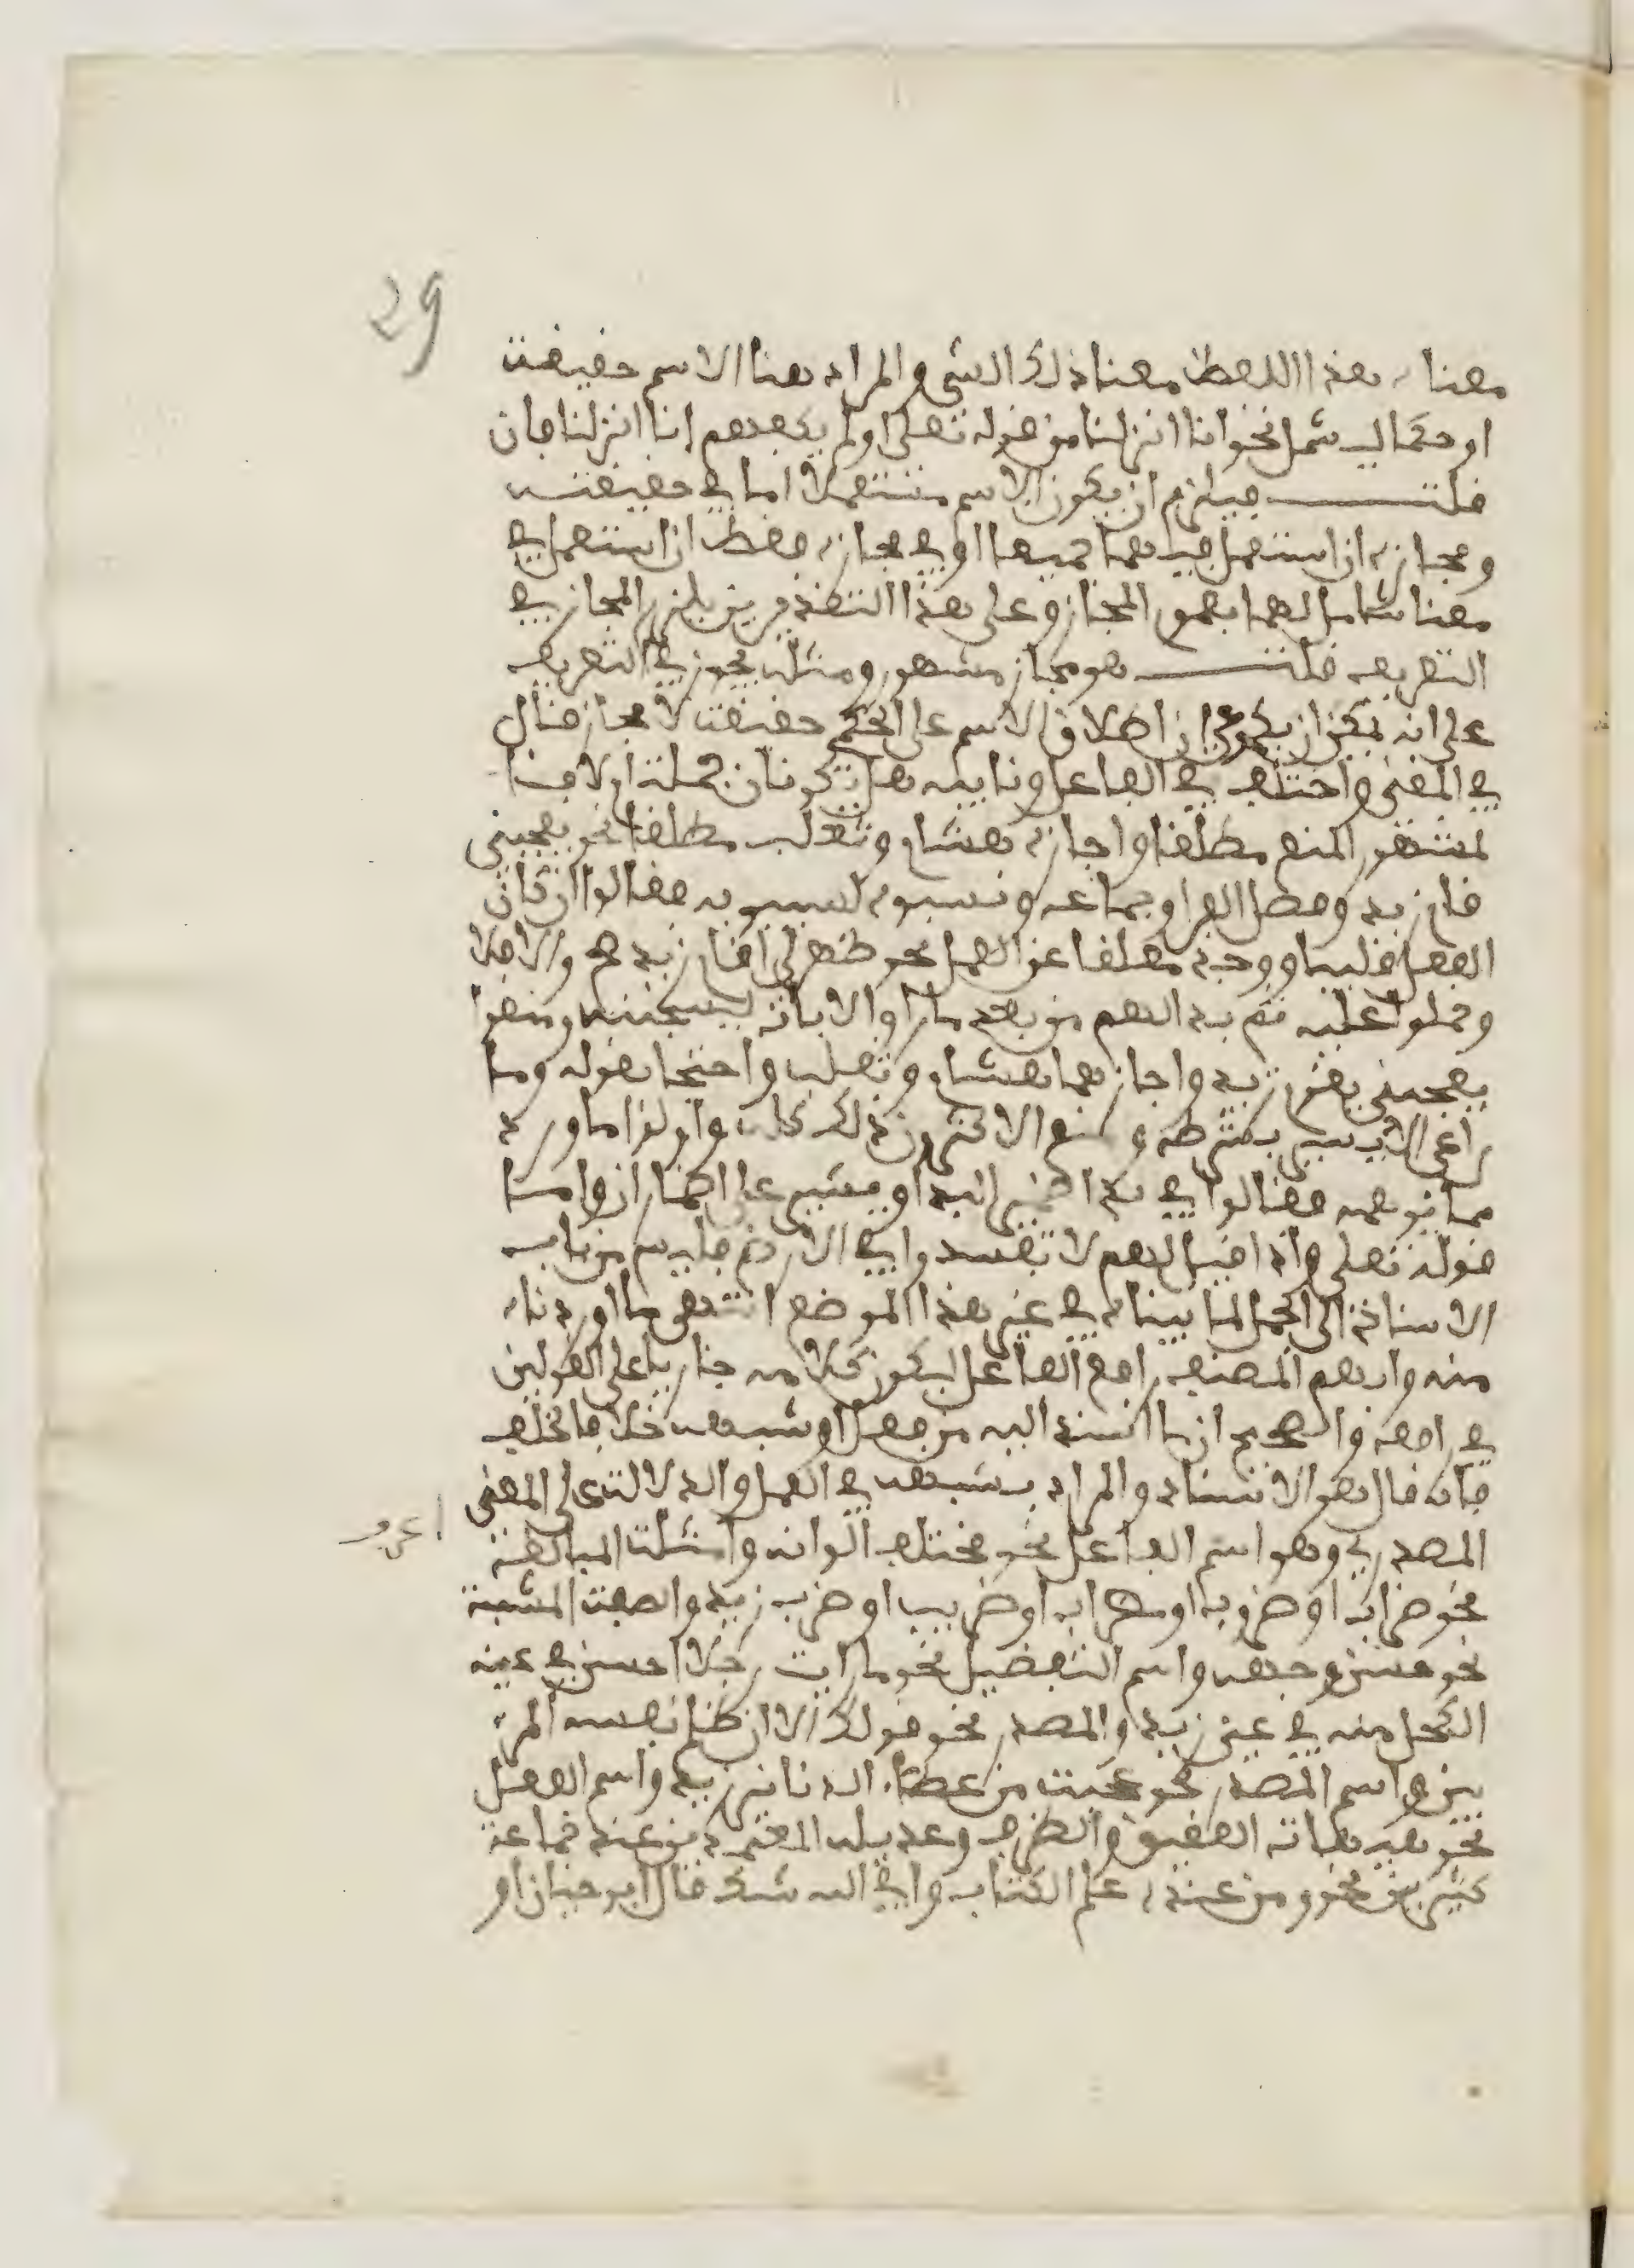 29
معناه هذا اللفظ معنا ذلك الشيء والمراد هنا الاسم حقيقة
او حكما ليشمل نحو انا انزلنا من قوله تعلى اولم يكفهم انا انزلنا فان
قلت فيلزم ان يكون الاسم مستعملا اما في حقيقته
ومجازه ان استعمل فيهما جميعا او في مجازه فقط ان استعمل في
معنا شامل لهما بعموم المجاز وعلى هذا التقديرين يلزم المجاز في
التعريف قلت هو مجاز مشهور ومثله يجوز في التعريف
على انه يمكن ان يكون ان اطلاق الاسم على الحكم حقيقة لا مجاز قال
في المغني واختلف في الفاعل ونايبه هل يكونان جملة ام لا فا
لمشهور المنع مطلقا واجازه هشام وثعلب مطلقا نحو يعجبني
قام زيد وفصل الفرا وجماعه ونسبوه لسيبويه فقالوا ان كان
الفعل قلبيا ووجد معلقا عن العمل نحو ظهر لي اقام زيد صح والا فلا
وحملوا عليه ثم بدا لهم من بعد ما راوا الايات ليسجننه ومنعوا
يعجبني يقوم زيد واجازهما هشام وثعلب واحتجا بقوله وما
راعني الا يسير بشرطه ومنع الاكثرون ذلك كله واولوا ما ورد
مما يوهمه فقالوا في بدا ضمير البدا ويسير على اضمار ان واما
قوله تعلى واذا قيل لهم لا تفسدوا في الارض فليس من باب
الاسناد الى الجمل لما بيناه في غير هذا الموضع انتهى ما اوردناه
منه وابهم المصنف رافع الفاعل ليكون كلامه جاريا على القولين
في رافعه والصحيح ان ما اسند اليه من فعل او شبهه خلافا لخلف
فانه قال هو الاسناد والمراد بشبهه في العمل والدلالة على المعنى
المصدري وهو اسم الفاعل نحو مختلف الوانه وامثلة المبالغة
نحو ضراب او ضروب او مضراب او ضريب او ضرب زيد والصفة المشبهة
نحو حسن وجهه واسم التفضيل نحو ما رايت رجلا احسن في عينه
الكحل منه في عين زيد والمصدر نحو قولك الا ان ظلم نفسه المر
بين واسم المصدر نحو عجبت من عطاء الدنانير زيد واسم الفعل
نحو هيهات العقيق والظرف وعديله المعتمدين عند جماعة
كثيرين نحو ومن عنده علم الكتاب وافي الله شك قال ابو حيان او